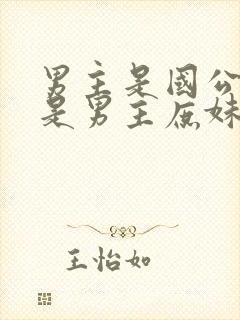 男主是国公
是男主庶妹
王怡如